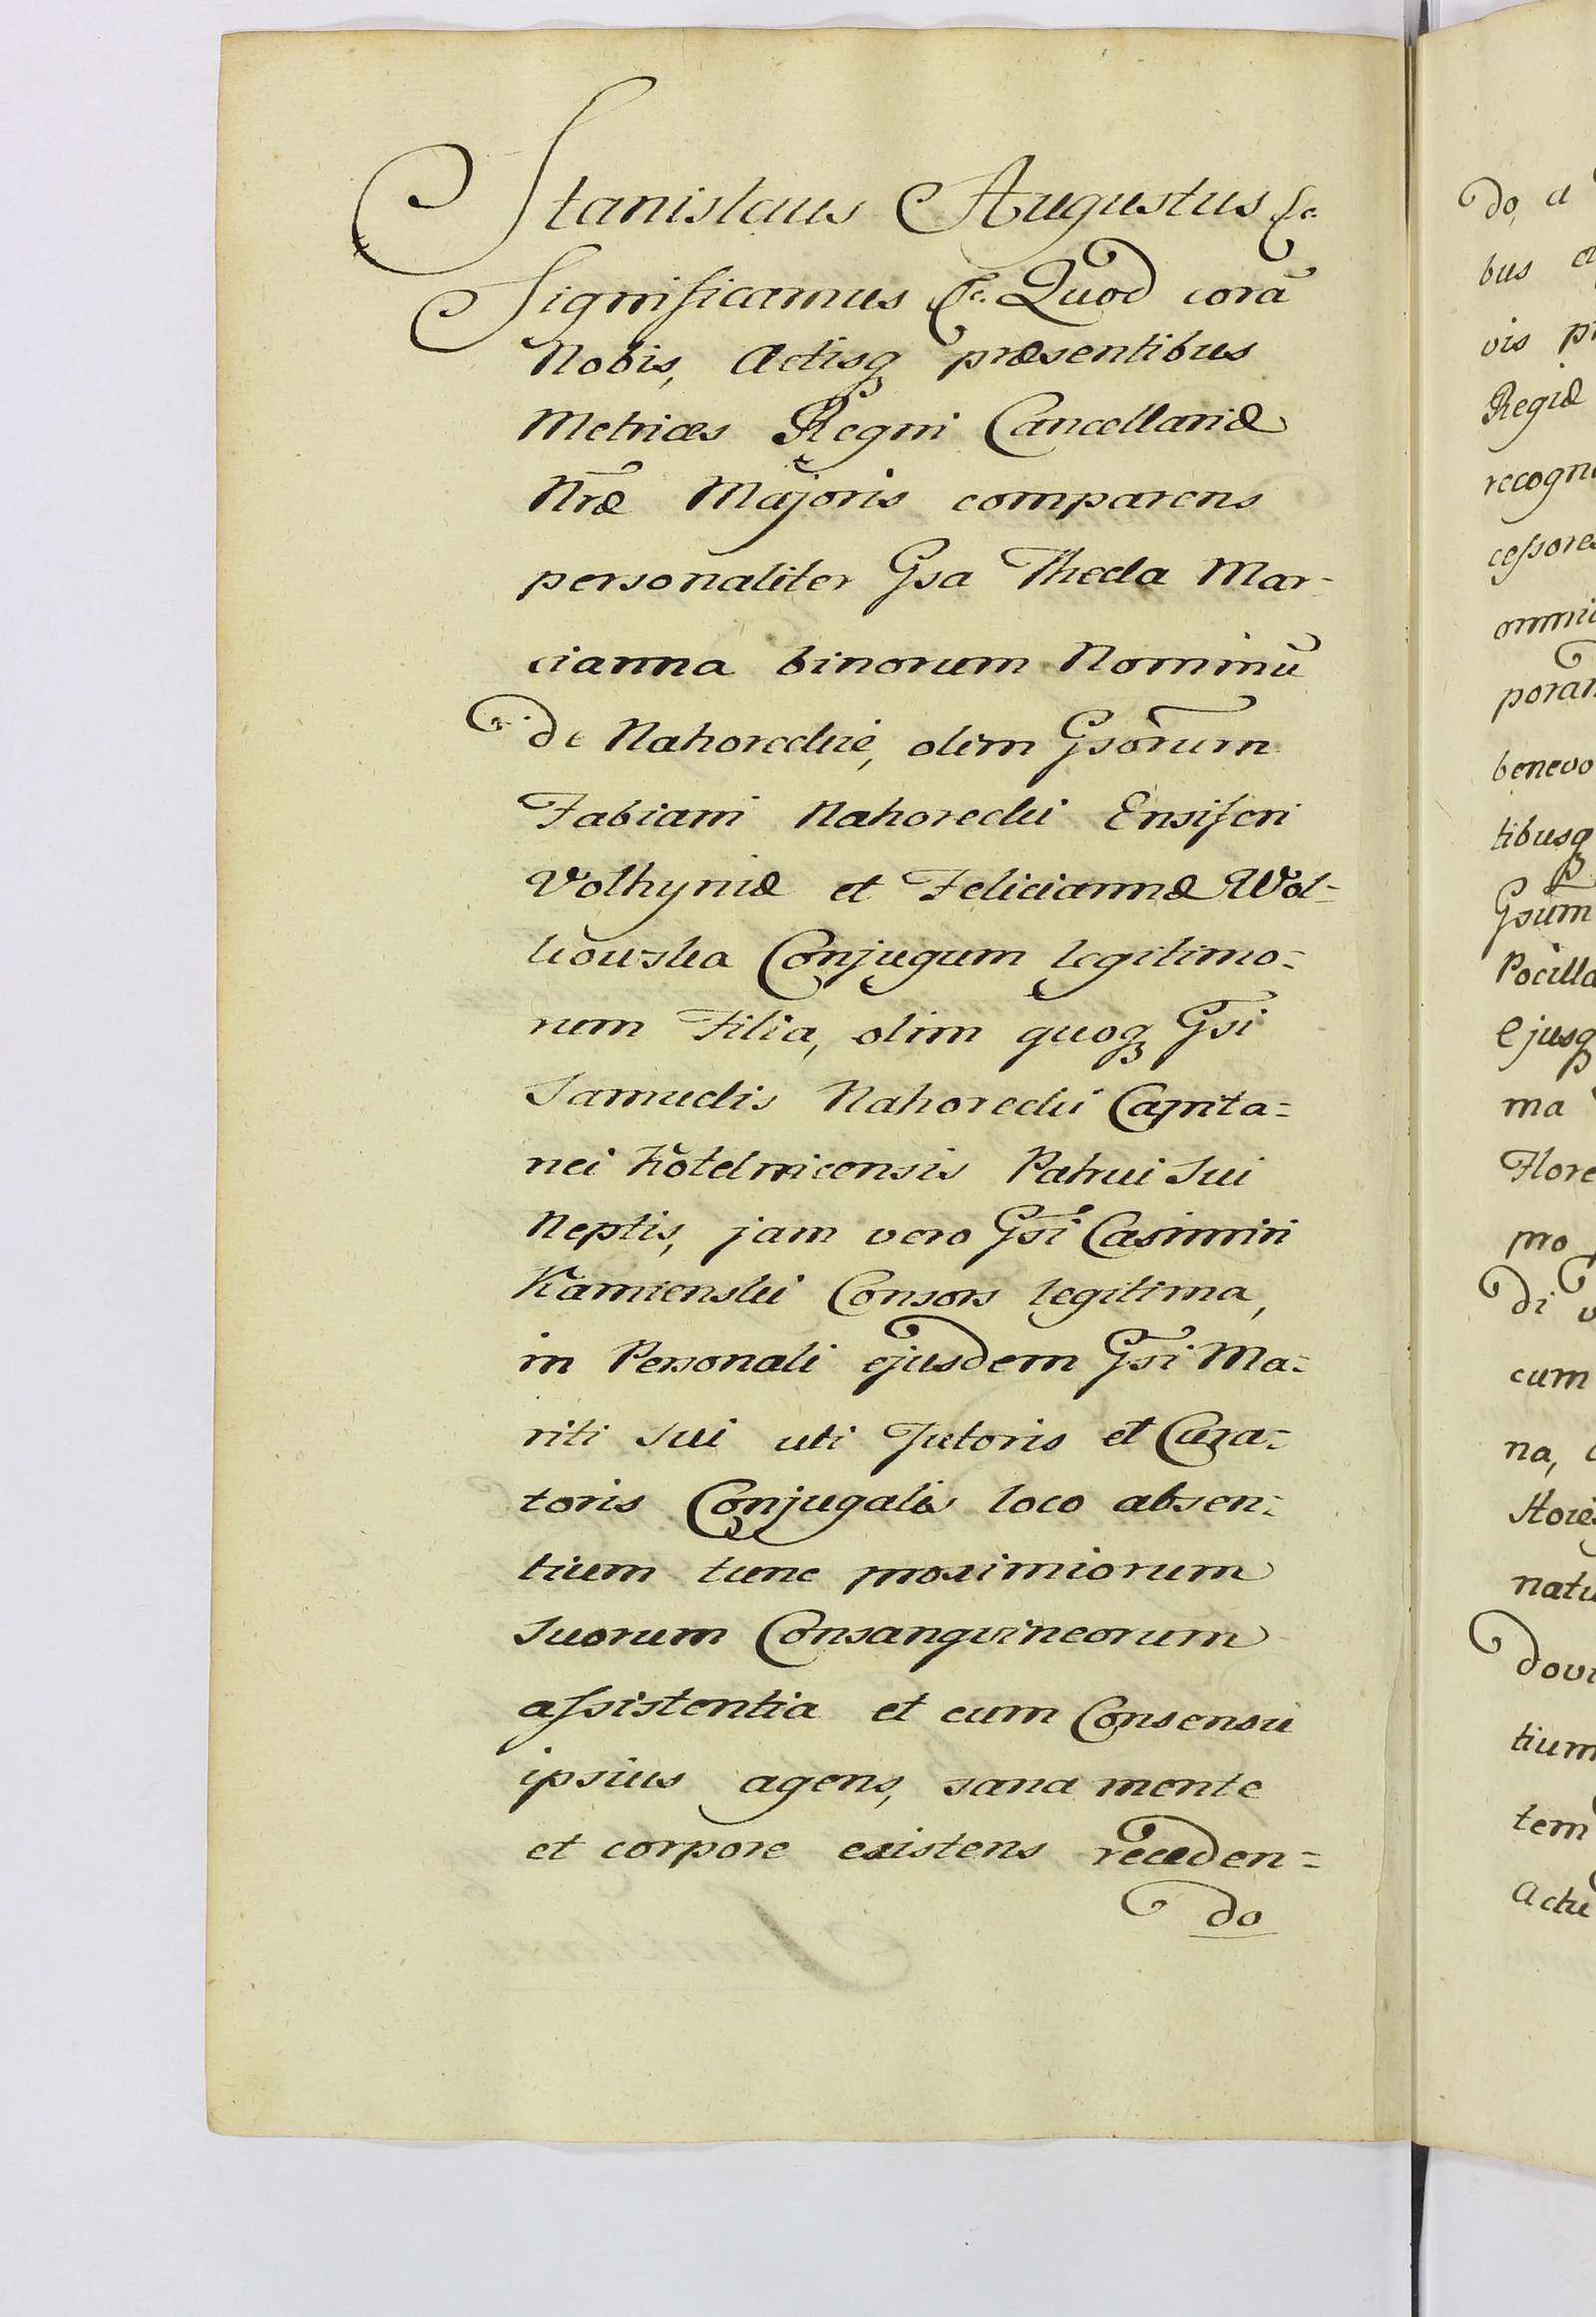 Stanislaus Augustus &c.
Significamus &c. Quod corã
Nobis, Actisq̃ præsentibus
Metrices Regni Cancellariæ
Nræ Majoris comparens
personaliter Gsa Thecla Mar-
cianna binorum Nominũ
de Nahoreckie, olim Gsorum
Fabiani Nahorecki Ensiferi
Volhyniæ et Feliciannæ Wol-
kowska Conjugum legitimo=
rum Filia, olim quoq̃ Gsi
Samuelis Nahorecki Capita=
nei Kotelnicensis Patrui Sui
Neptis, jam vero Gsi Casimiri
Kamienski Consors legitima,
in Personali ejusdem Gsi Ma=
riti sui uti Tutoris et Cura=
toris Conjugalis loco absen=
tium tunc proximiorum
Suorum Consanguineorum
assistentia et cum Consensu
ipsius agens, sana mente
et corpore existens receden=
do
do, a
bus
vis
Regiæ
recogn
cessores
omni
poran
benevo
tibusq̃
Gsum
Pocilla
Ejusq̃
ma
Flore
pro
di
cum
na,
natu
dovi
tium
tem
Actu